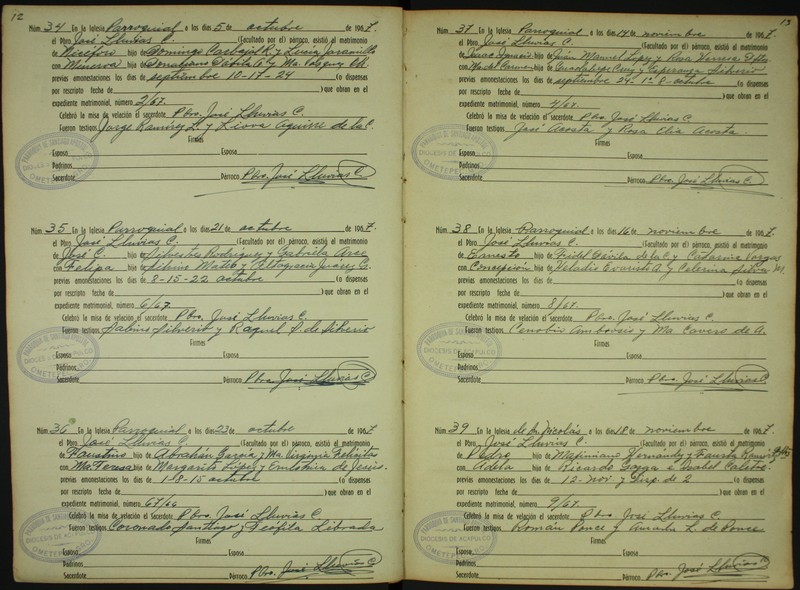 12
Núm. 34 En la Iglesia Parroquial a los días 5 de octubre de 1967.
el Pbro. José Lluvias C. (Facultado por el) párroco, asistió al matrimonio
de Nicéforo hijo de Domingo Carbajal R. y Lucía Jaramillo
con Minerva hija de Donaciano Dávila A. y Ma. Vázquez
previas amonestaciones los días de septiembre 10-17-24 (o dispensas
por rescripto fecha de ) que obran en el
expediente matrimonial, número 2/67.
Celebró la misa de relación el sacerdote Pbro. José Lluvias C.
Fueron testigos Jorge Ramírez L. y Aguirre de la C.
Firmas
Esposo Esposa
Padrinos
Sacerdote Párroco Pbro. José Lluvias C.
Núm. 35 En la Iglesia Parroquial a los días 21 de octubre de 1967.
el Pbro. José Lluvias C. (Facultado por el) párroco, asistió al matrimonio
de José C. hijo de Silvestre Rodríguez y Gabriela Arce
con Felipa hija de Albino Mateo y Altagracia Juárez G.
previas amonestaciones los días de 8-15-22 octubre (o dispensas
por rescripto fecha de ) que obran en el
expediente matrimonial, número 6/67.
Celebró la misa de relación el sacerdote Pbro. José Lluvias C.
Fueron testigos Sabino Silverio y Raquel S. de Silverio
Firmas
Esposo Esposa
Padrinos
Sacerdote Párroco Pbro. José Lluvias C.
Núm. 36 En la Iglesia Parroquial a los días 23 de octubre de 1967
el Pbro. José Lluvias C. (Facultado por el) párroco, asistió al matrimonio
de Faustino hijo de Abrahán García y Ma. Virginia Felícitas
con Ma Teresa hija de Margarito López y de Jesús.
previas amonestaciones los días de 1-8-15 octubre (o dispensas
por rescripto fecha de ) que obran en el
expediente matrimonial, número 67/66
Celebró la misa de relación el sacerdote Pbro. José Lluvias C.
Fueron testigos Coronado Santiago y Teófita Librada
Firmas
Esposo Esposa
Padrinos
Sacerdote Párroco Pbro. José Lluvias C.
13
Núm. 37 En la Iglesia Parroquial a los días 14 de noviembre de 1967.
el Pbro. José Lluvias C. (Facultado por el) párroco, asistió al matrimonio
de Isaac Ignacio hijo de Juan Manuel López y Rosa Herrera
con Ma del Carmen hija de Guadalupe Cruz y Esperanza Silverio
previas amonestaciones los días de septiembre 24-1º-8-octubre (o dispensas
por rescripto fecha de ) que obran en el
expediente matrimonial, número 4/67.
Celebró la misa de relación el sacerdote Pbro. José Lluvias C.
Fueron testigos José Acosta y Rosa Elia Acosta.
Firmas
Esposo Esposa
Padrinos
Sacerdote Párroco Pbro. José Lluvias C.
Núm. 38 En la Iglesia Parroquial a los días 16 de noviembre de 1967.
el Pbro. José Lluvias C. (Facultado por el) párroco, asistió al matrimonio
de Ernesto hijo de Fidel Dávila de la C. y Catarina Vargas
con Concepción hija de Eladio Evaristo A. y Celerina Silva M.
previas amonestaciones los días de (o dispensas
por rescripto fecha de ) que obran en el
expediente matrimonial, número 8/67.
Celebró la misa de relación el sacerdote Pbro. José Lluvias C.
Fueron testigos Cenobio Ambrosio y Ma. Cavero de A.
Firmas
Esposo Esposa
Padrinos
Sacerdote Párroco Pbro. José Lluvias C.
Núm. 39 En la Iglesia de Sn. Nicolás a los días 18 de noviembre de 1967.
el Pbro. José Lluvias C. (Facultado por el) párroco, asistió al matrimonio
de Pedro hijo de Maximiano Hernández y Fausta Ramírez
con Adela hija de Ricardo Gorga e Isabel Calvo.
previas amonestaciones los días de 12-Nov. y Disp. de 2 (o dispensas
por rescripto fecha de ) que obran en el
expediente matrimonial, número 9/67.
Celebró la misa de relación el sacerdote Pbro. José Lluvias C.
Fueron testigos Román Ponce y Amada L. de Ponce
Firmas
Esposo Esposa
Padrinos
Sacerdote Párroco Pbro. José Lluvias C.